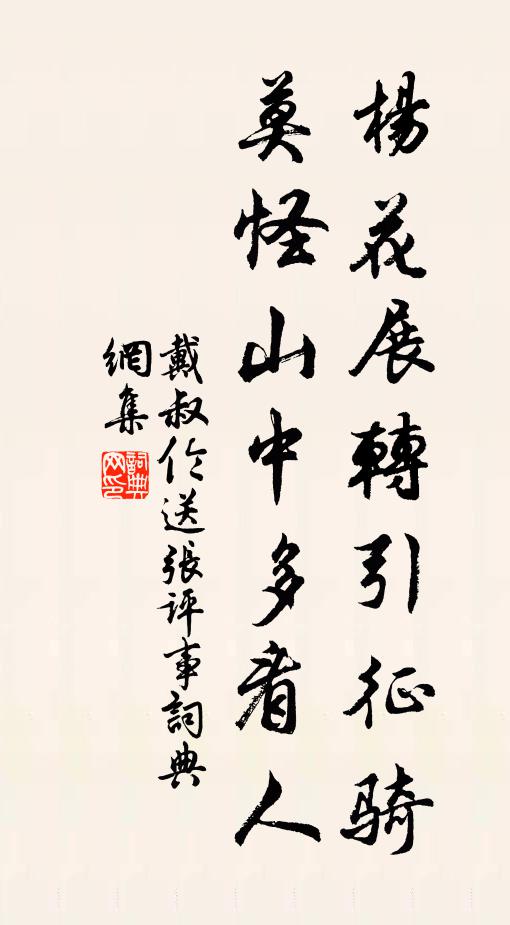 楊花展轉引征騎
莫怪山中多看人
戴叔伦送張评事詞典
網集
詞典
网印